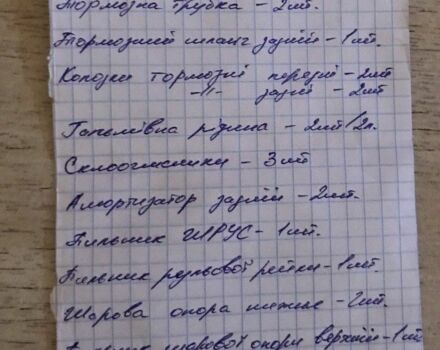 Тормозна трубка - 2шт.
Тормозний шланг задній - 1шт.
Колодки тормозні передні - 2шт
-"- задні - 2шт
Гальмівна рідина - 2шт/2л.
Склоочисники - 3шт
Амортизатор задній - 2шт.
Пильник ШРУС - 1шт.
Пильник рульової рейки - 1шт.
Шарова опора нижня - 2шт.
шарової опори верхній - 1шт